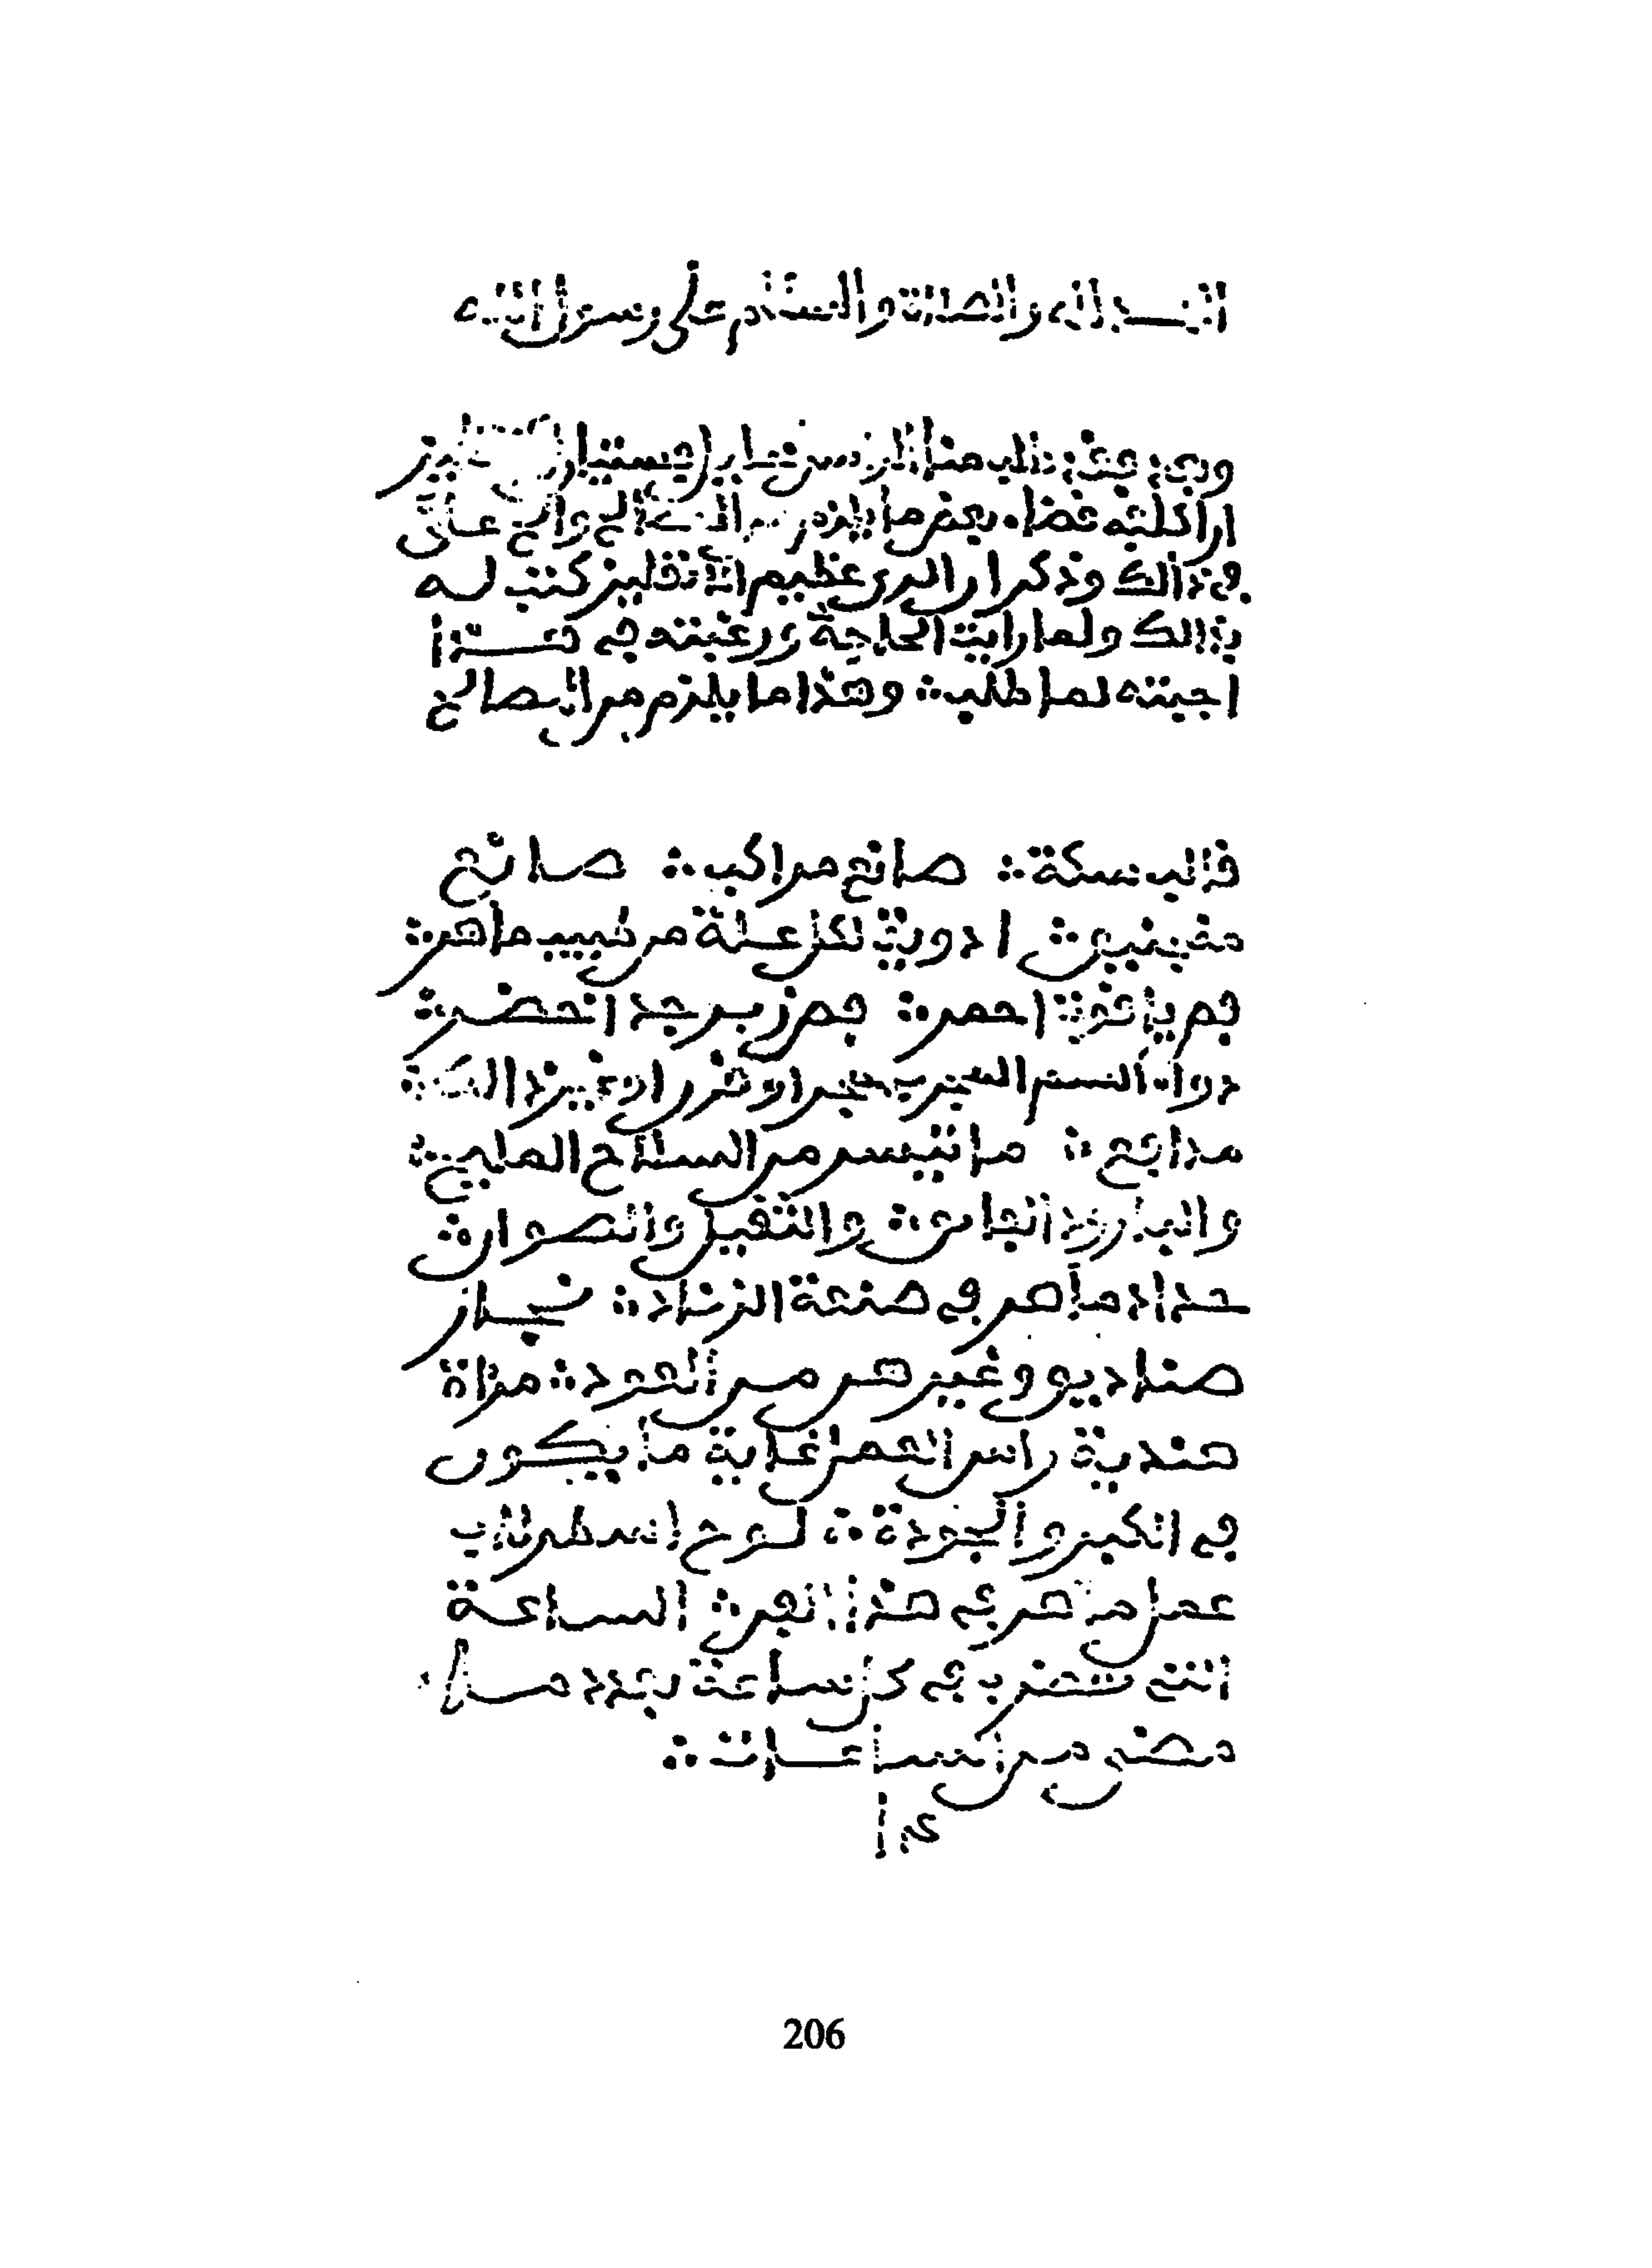 الحمد لله والصلاة والسلام على رسول الله
وبعد فقد طلب منا القونسل
اراد قضاء بعض ما يلزم من المصالح
في ذالك وذكر ان الدي عظيم الانقليز كتب له
بذالك ولما رايت الحاجة ورغبته في هــذا
اجبته لما طلب ۞ وهذا ما يلزم من المصالح
قالب سكة ∴ صانع مراكب ∴ صانع
ادوية لكل علة من طبيب ماهر ∴
فص ياقوت احمر ∴ فص زبرجد اخضر ∴
دواء السم المجرب حجر او غير ذالك ∴
مدافع ∴ ما تيسر من السلاح المليح ∴
والبارود والثقيل والصوان ∴
حداد ماهر في صنعة الزناد ∴ نجار
صناديق وغيرهم من العود ∴ مراة
هندية راس العمل غاية ما يكون
في الكبر والجودة ∴ لوح اسطرلاب
عمل ماهر في هذا الفن ∴ الساعة
التي تضرب في كل ساعة بعدد مــا
مضى من الساعات ∴
206